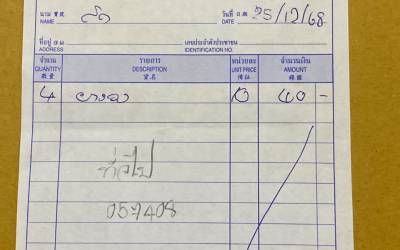 นาม 寶號 วันที่ 日期 25/12/68
ที่อยู่ 住址 เลขประจำตัวประชาชน
ADDRESS IDENTIFICATION NO.
จำนวน รายการ หน่วยละ จำนวนเงิน
QUANTITY DESCRIPTION UNIT PRICE AMOUNT
數量 貨名 價組 銀額
4 ยางวง 10 40 -
ทั่วไป
057408